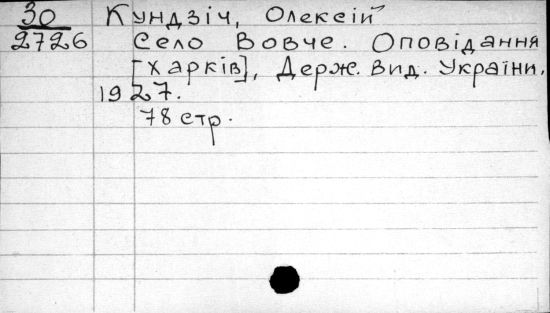 30 Кундзіч, Олексій
2726 Село Вовче. Оповідання
[Харків], Держ. Вид. України,
1927.
78 стр.